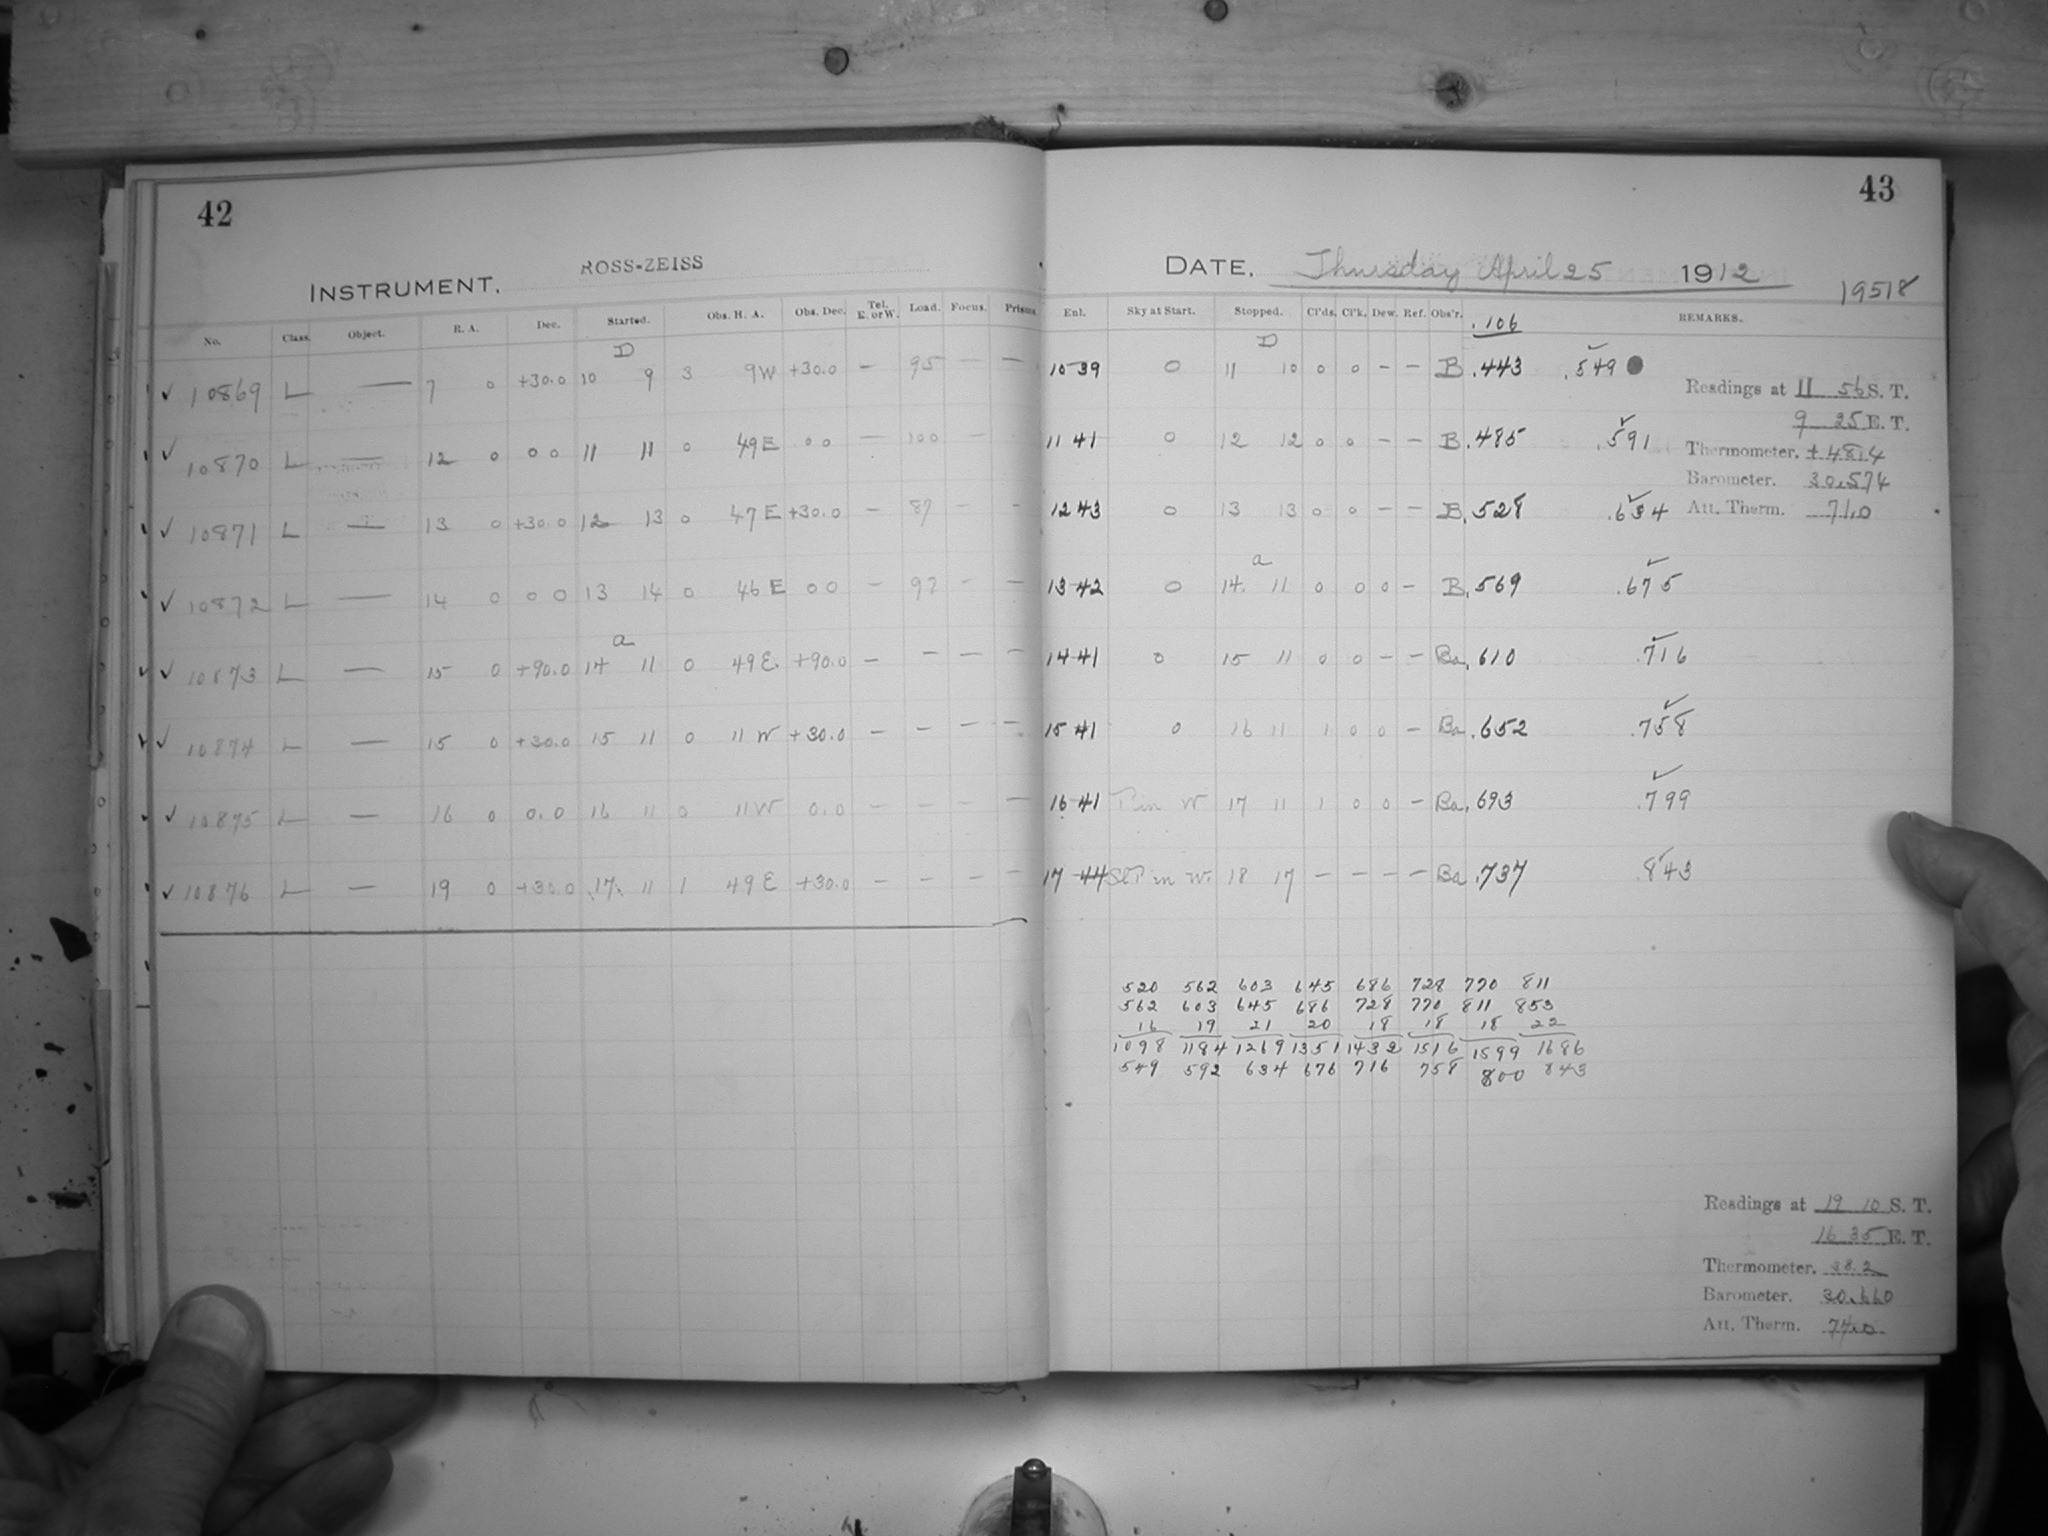 42
INSTRUMENT. ROSS-ZEISS
No. Class. Object. R. A. Dec. Started. Obs. H. A. Obs. Dec. Tel. E. or W. Load. Focus. Prisms.
D
✓ 10869 L — 7 0 +30.0 10 9 3 9W +30.0 — 95 — —
✓ 10870 L — 12 0 0 0 11 11 0 49E 0 0 — 100 —
✓ 10871 L — 13 0 +30.0 12 13 0 47E +30.0 — 87 — —
✓ 10872 L — 14 0 0 0 13 14 0 46E 0 0 — 97 — —
a
✓ 10873 L — 15 0 +90.0 14 11 0 49E. +90.0 — — — —
✓ 10874 L — 15 0 +30.0 15 11 0 11W +30.0 — — — —
✓ 10875 L — 16 0 0.0 16 11 0 11W 0.0 — — — —
✓ 10876 L — 19 0 +30.0 17 11 1 49E +30.0 — — — —
43
DATE. Thursday April 25 1912
19518
Enl. Sky at Start. Stopped. Cl'ds. Cl'k. Dew. Ref. Obs'r. .106 REMARKS.
D
10 39 0 11 10 0 0 — — B .443 .549
11 41 0 12 12 0 0 — — B .485 .591
12 43 0 13 13 0 0 — — B .528 .634
a
13 42 0 14 11 0 0 0 — B .569 .675
14 41 0 15 11 0 0 — — Ba .610 .716
15 41 0 16 11 1 0 0 — Ba .652 .758
16 41 W 17 11 1 0 0 — Ba .693 .799
17 44 in W. 18 17 — — — — Ba .737 .843
Readings at 11 56 S. T.
9 25 E. T.
Thermometer. +48.4
Barometer. 30.574
Att. Therm. 71.0
520 562 603 645 686 728 770 811
562 603 645 686 728 770 811 853
16 19 21 20 18 18 18 22
1098 1184 1269 1351 1432 1516 1599 1686
549 592 634 676 716 758 800 843
Readings at 19 10 S. T.
16 35 E. T.
Thermometer. 38.2
Barometer. 30.660
Att. Therm. 74.0